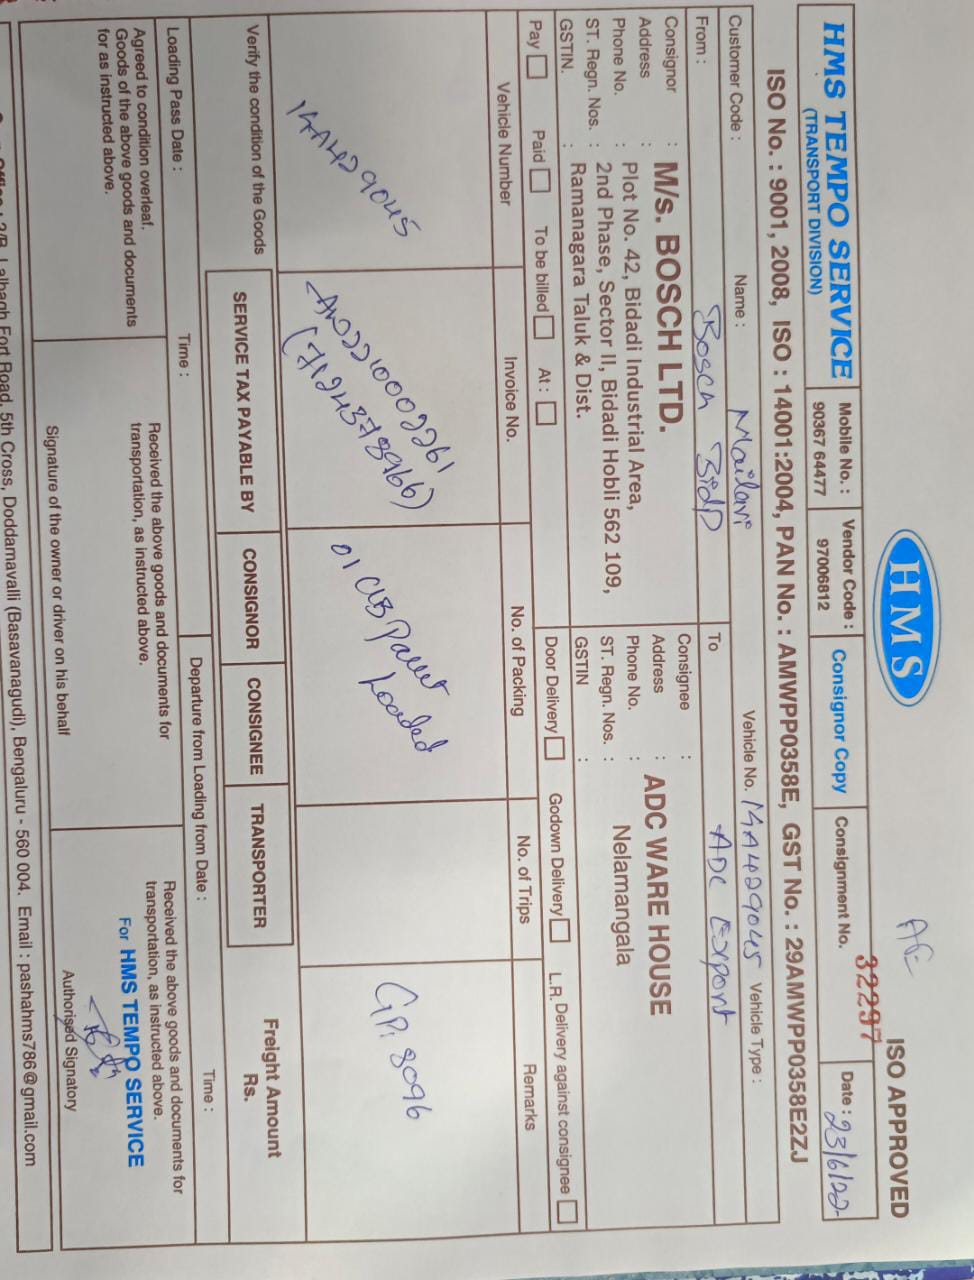 HMS
AE
ISO APPROVED
HMS TEMPO SERVICE
(TRANSPORT DIVISION)
Mobile No. :
90367 64477
Vendor Code :
97006812
Consignor Copy
Consignment No.
32297
Date : 23/6/22
ISO No. : 9001, 2008, ISO : 14001:2004, PAN No. : AMWPP0358E, GST No. : 29AMWPP0358E2ZJ
Customer Code :
Name : Mailavi
Vehicle No. KA429045
Vehicle Type :
From : Bosch BidP
To ADC Export
Consignor :
Address :
Phone No. :
ST. Regn. Nos. :
GSTIN. :
M/s. BOSCH LTD.
Plot No. 42, Bidadi Industrial Area,
2nd Phase, Sector II, Bidadi Hobli 562 109,
Ramanagara Taluk & Dist.
Consignee :
Address :
Phone No. :
ST. Regn. Nos. :
GSTIN :
ADC WARE HOUSE
Nelamangala
Pay
Paid
To be billed
At :
Door Delivery
Godown Delivery
L.R. Delivery against consignee
Vehicle Number
Invoice No.
No. of Packing
No. of Trips
Remarks
KA429045
(7124378966)
01 CLB Pallet
Loaded
GP: 8096
Verify the condition of the Goods
SERVICE TAX PAYABLE BY
CONSIGNOR
CONSIGNEE
TRANSPORTER
Freight Amount
Rs.
Loading Pass Date :
Time :
Departure from Loading from Date :
Time :
Agreed to condition overleaf.
Goods of the above goods and documents
for as instructed above.
Received the above goods and documents for
transportation, as instructed above.
Signature of the owner or driver on his behalf
Received the above goods and documents for
transportation, as instructed above.
For HMS TEMPO SERVICE
Authorised Signatory
Lalbagh Fort Road, 5th Cross, Doddamavalli (Basavanagudi), Bengaluru - 560 004. Email : pashahms786@gmail.com